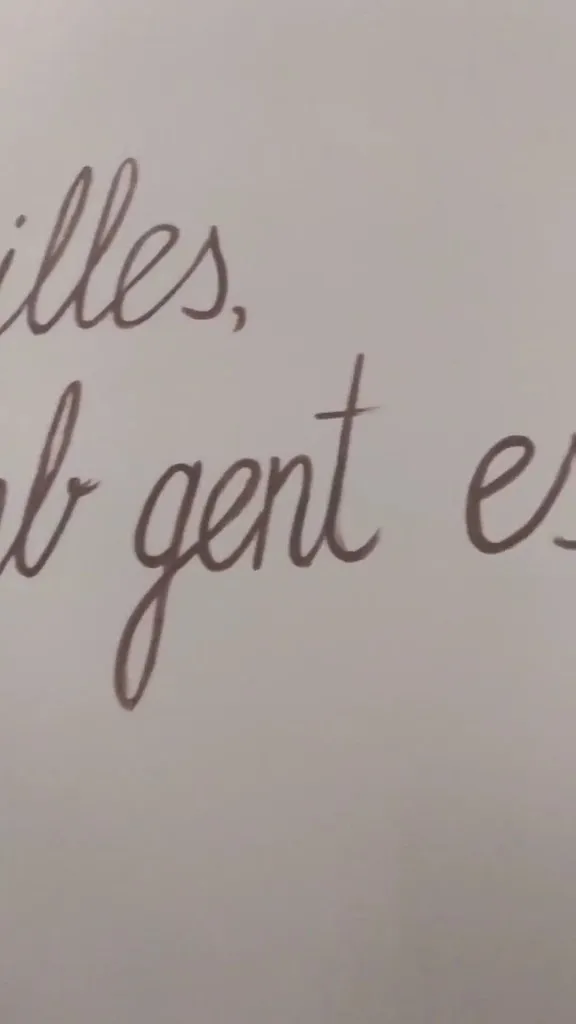 illes,
b gent es